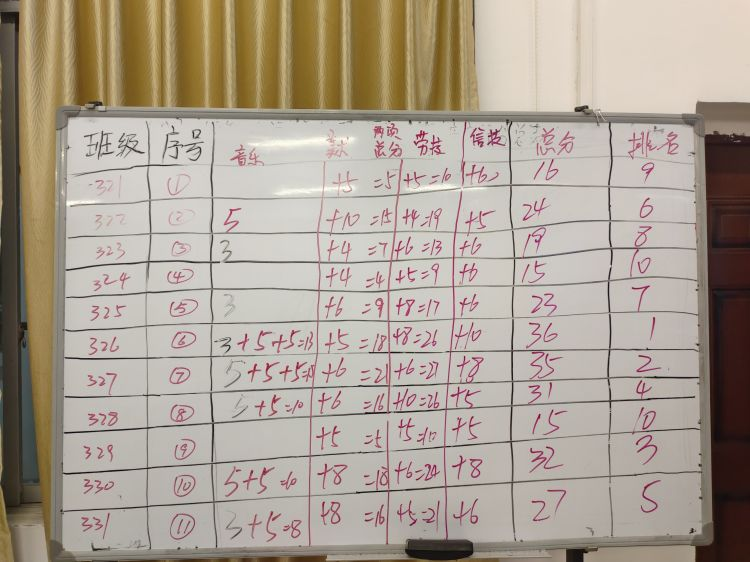 班级 序号 音乐 美术 两项总分 劳技 信技 总分 排名
321 ① +5 =5 +5=10 +6 16 9
322 ② 5 +10 =15 +4=19 +5 24 6
323 ③ 3 +4 =7 +6=13 +6 19 8
324 ④ +4 =4 +5=9 +6 15 10
325 ⑤ 3 +6 =9 +8=17 +6 23 7
326 ⑥ 3+5+5=13 +5 =18 +8=26 +10 36 1
327 ⑦ 5+5+5=15 +6 =21 +6=27 +8 35 2
328 ⑧ 5+5=10 +6 =16 +10=26 +5 31 4
329 ⑨ +5 =5 +5=10 +5 15 10
330 ⑩ 5+5=10 +8 =18 +6=24 +8 32 3
331 ⑪ 3+5=8 +8 =16 +5=21 +6 27 5